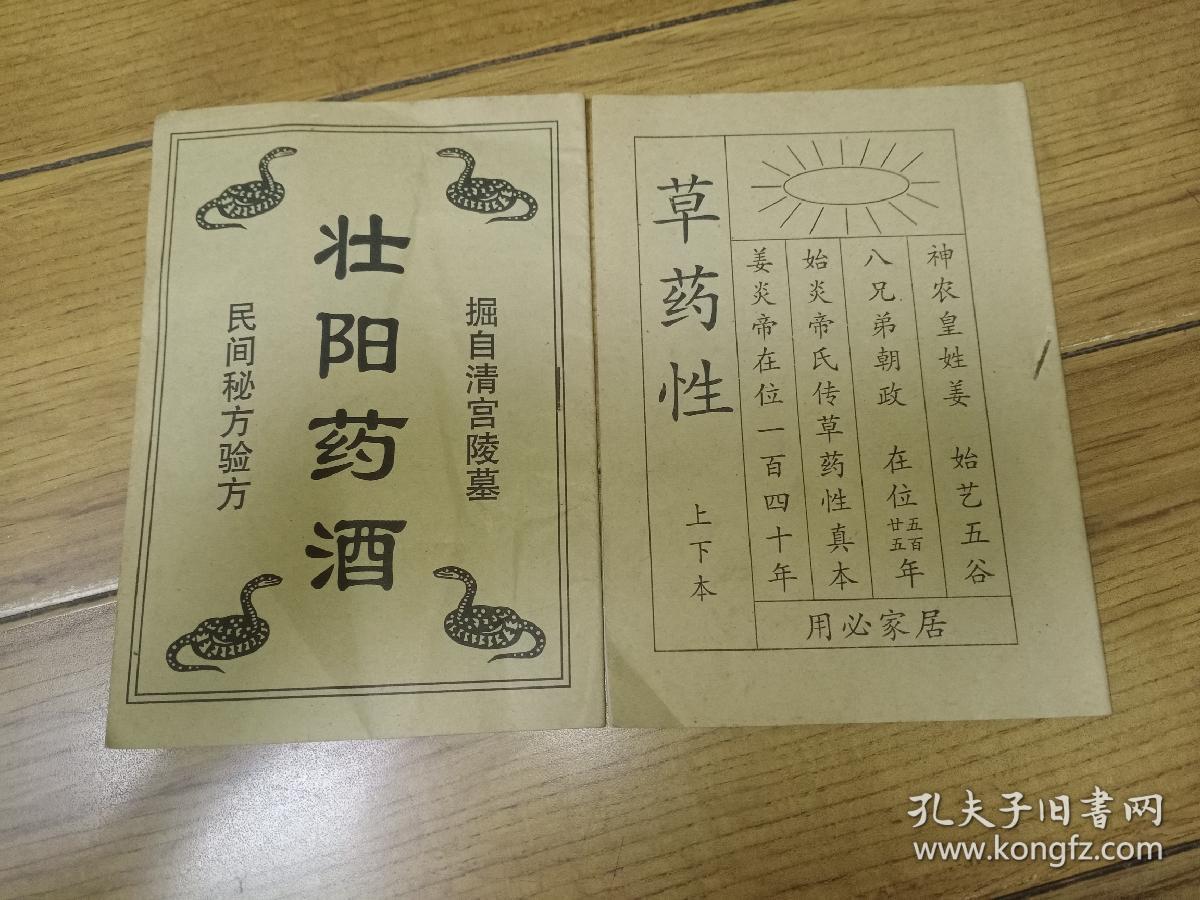 掘自清宫陵墓
壮阳药酒
民间秘方验方
神农皇姓姜 始艺五谷
八兄弟朝政 在位五百廿五年
始炎帝氏传草药性真本
姜炎帝在位一百四十年
草药性 上下本
居家必用
孔夫子旧书网
www.kongfz.com